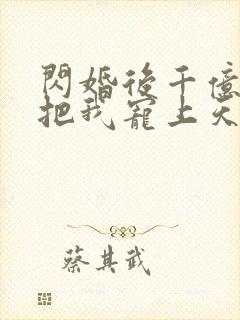 閃婚後千億
把我寵上天
蔡其武